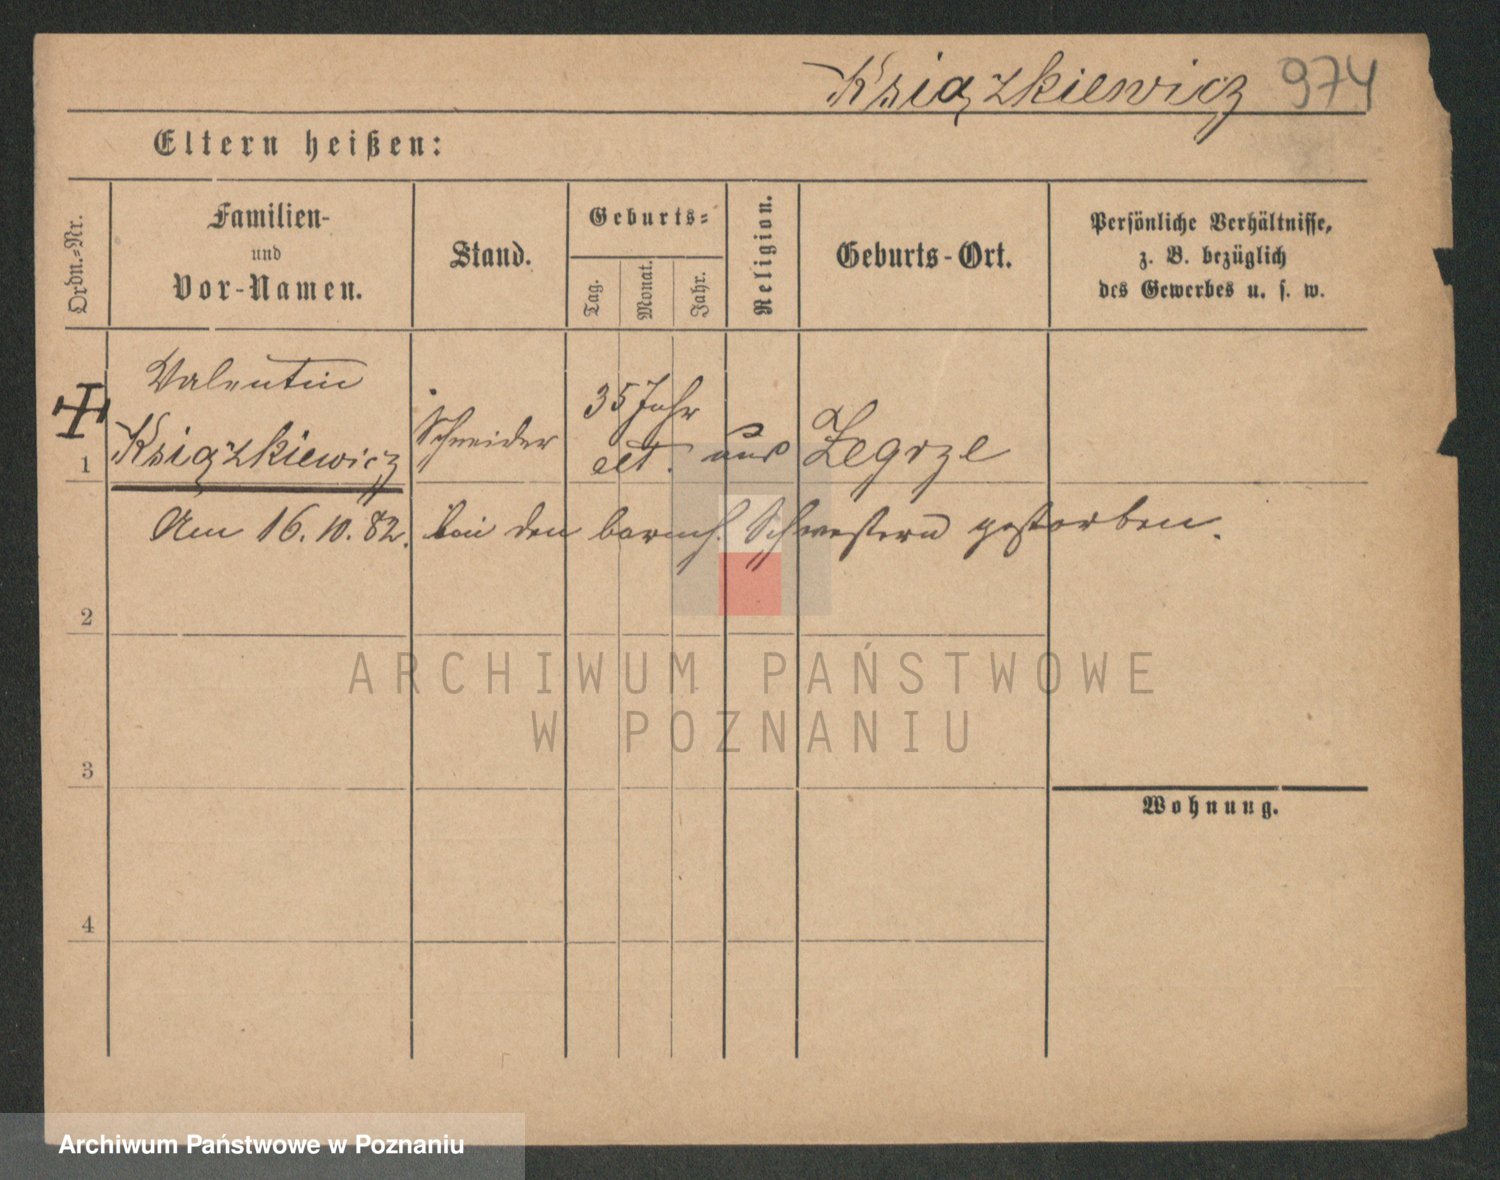 Książkiewicz 974
Eltern heißen:
Ordn.-Nr.
Familien-
und
Vor-Namen.
Stand.
Geburts-
Tag.
Monat.
Jahr.
Religion.
Geburts-Ort.
Persönliche Verhältnisse,
z. B. bezüglich
des Gewerbes u. s. w.
Valentin
35 Jahr
1 Książkiewicz Schneider alt. aus Zegrze
Am 16.10.82. bei den barmh. Schwestern gestorben.
2
ARCHIWUM PAŃSTWOWE
W POZNANIU
3
Wohnung.
4
Archiwum Państwowe w Poznaniu